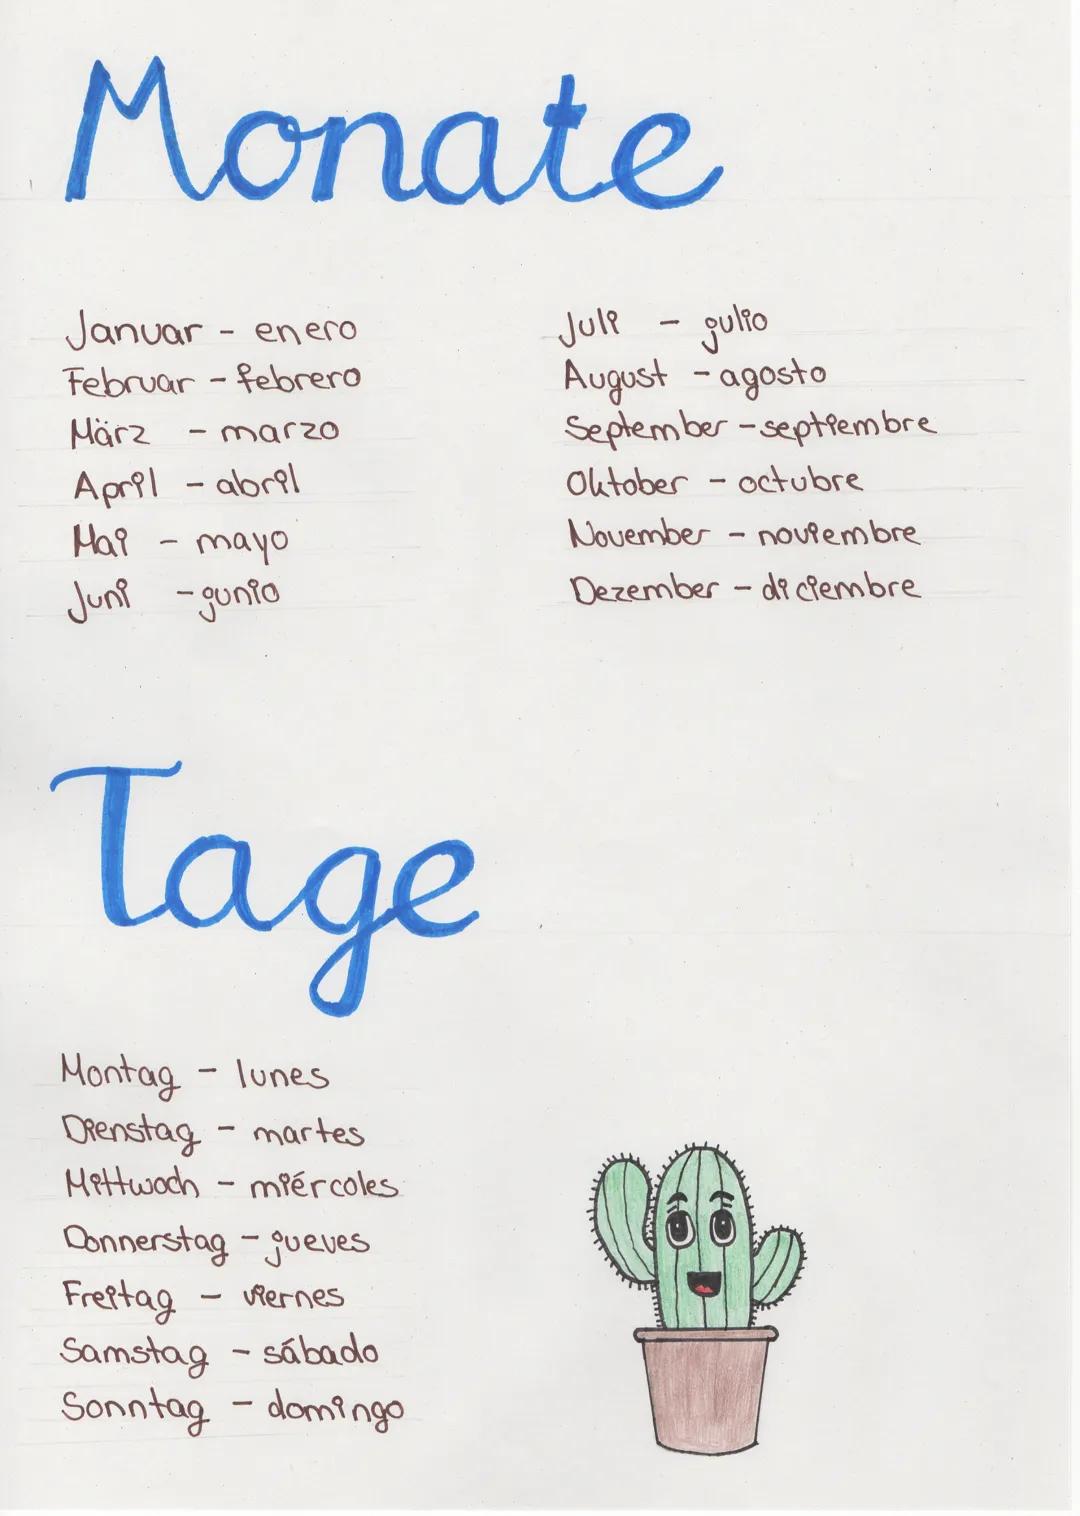 Monate
Januar - enero
Februar - febrero
März - marzo
April - abril
Mai - mayo
Juni - gunio
Juli - gulio
August - agosto
September - septiembre
Oktober - octubre
November - noviembre
Dezember - diciembre
Tage
Montag - lunes
Dienstag - martes
Mittwoch - miércoles
Donnerstag - jueves
Freitag - viernes
Samstag - sábado
Sonntag - domingo